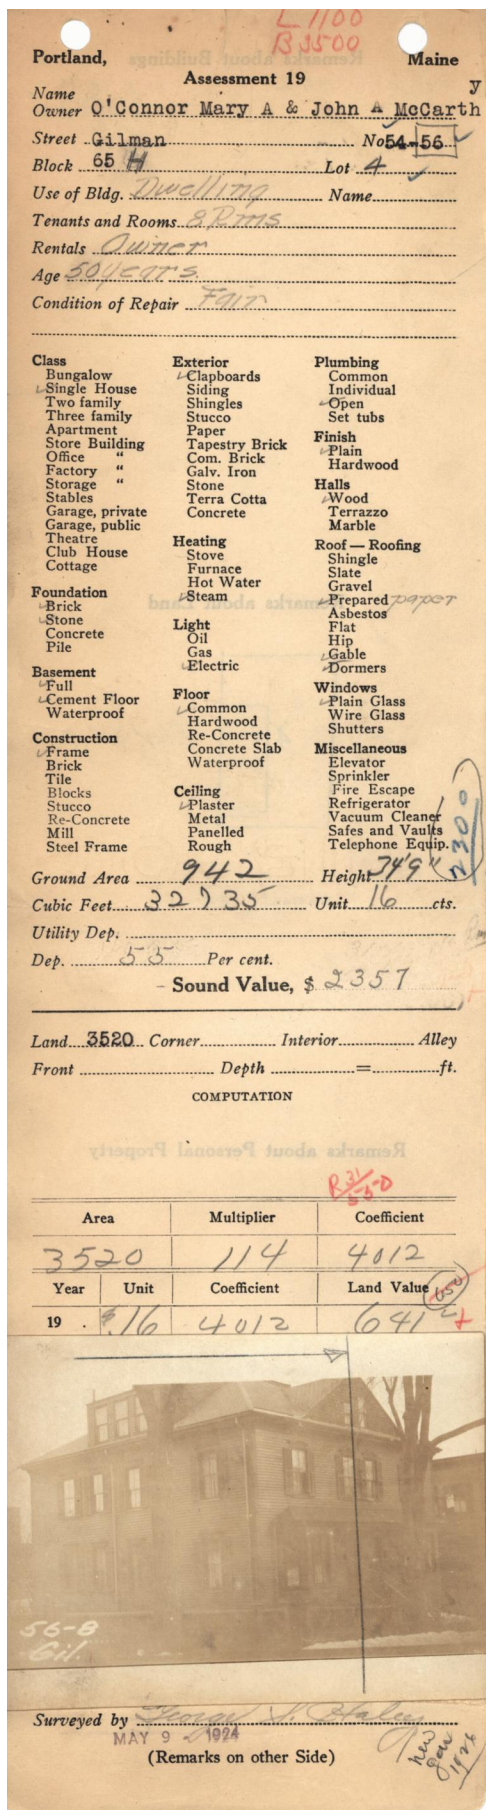 L 1100
B 3500
Portland, Maine
Assessment 19
Name
Owner O'Connor Mary A & John A McCarthy
Street Gilman No 54-56
Block 65 H Lot 4
Use of Bldg. Dwelling Name
Tenants and Rooms 8 Rms
Rentals Owner
Age 50 years.
Condition of Repair Fair
Class
Bungalow
Single House
Two family
Three family
Apartment
Store Building
Office "
Factory "
Storage "
Stables
Garage, private
Garage, public
Theatre
Club House
Cottage
Foundation
Brick
Stone
Concrete
Pile
Basement
Full
Cement Floor
Waterproof
Construction
Frame
Brick
Tile
Blocks
Stucco
Re-Concrete
Mill
Steel Frame
Exterior
Clapboards
Siding
Shingles
Stucco
Paper
Tapestry Brick
Com. Brick
Galv. Iron
Stone
Terra Cotta
Concrete
Heating
Stove
Furnace
Hot Water
Steam
Light
Oil
Gas
Electric
Floor
Common
Hardwood
Re-Concrete
Concrete Slab
Waterproof
Ceiling
Plaster
Metal
Panelled
Rough
Plumbing
Common
Individual
Open
Set tubs
Finish
Plain
Hardwood
Halls
Wood
Terrazzo
Marble
Roof — Roofing
Shingle
Slate
Gravel
Prepared paper
Asbestos
Flat
Hip
Gable
Dormers
Windows
Plain Glass
Wire Glass
Shutters
Miscellaneous
Elevator
Sprinkler
Fire Escape
Refrigerator
Vacuum Cleaner
Safes and Vaults
Telephone Equip.
2300
Ground Area 942 Height 34'9"
Cubic Feet 32735 Unit 16 cts.
Utility Dep.
Dep. 55 Per cent.
Sound Value, $ 2357
Land 3520 Corner Interior Alley
Front Depth = ft.
COMPUTATION
Area Multiplier Coefficient
3520 114 4012
Year Unit Coefficient Land Value 650
19 . $.16 4012 641
56-8
Gil.
Surveyed by George
MAY 9 - 1924
(Remarks on other Side)
new
gar
1926